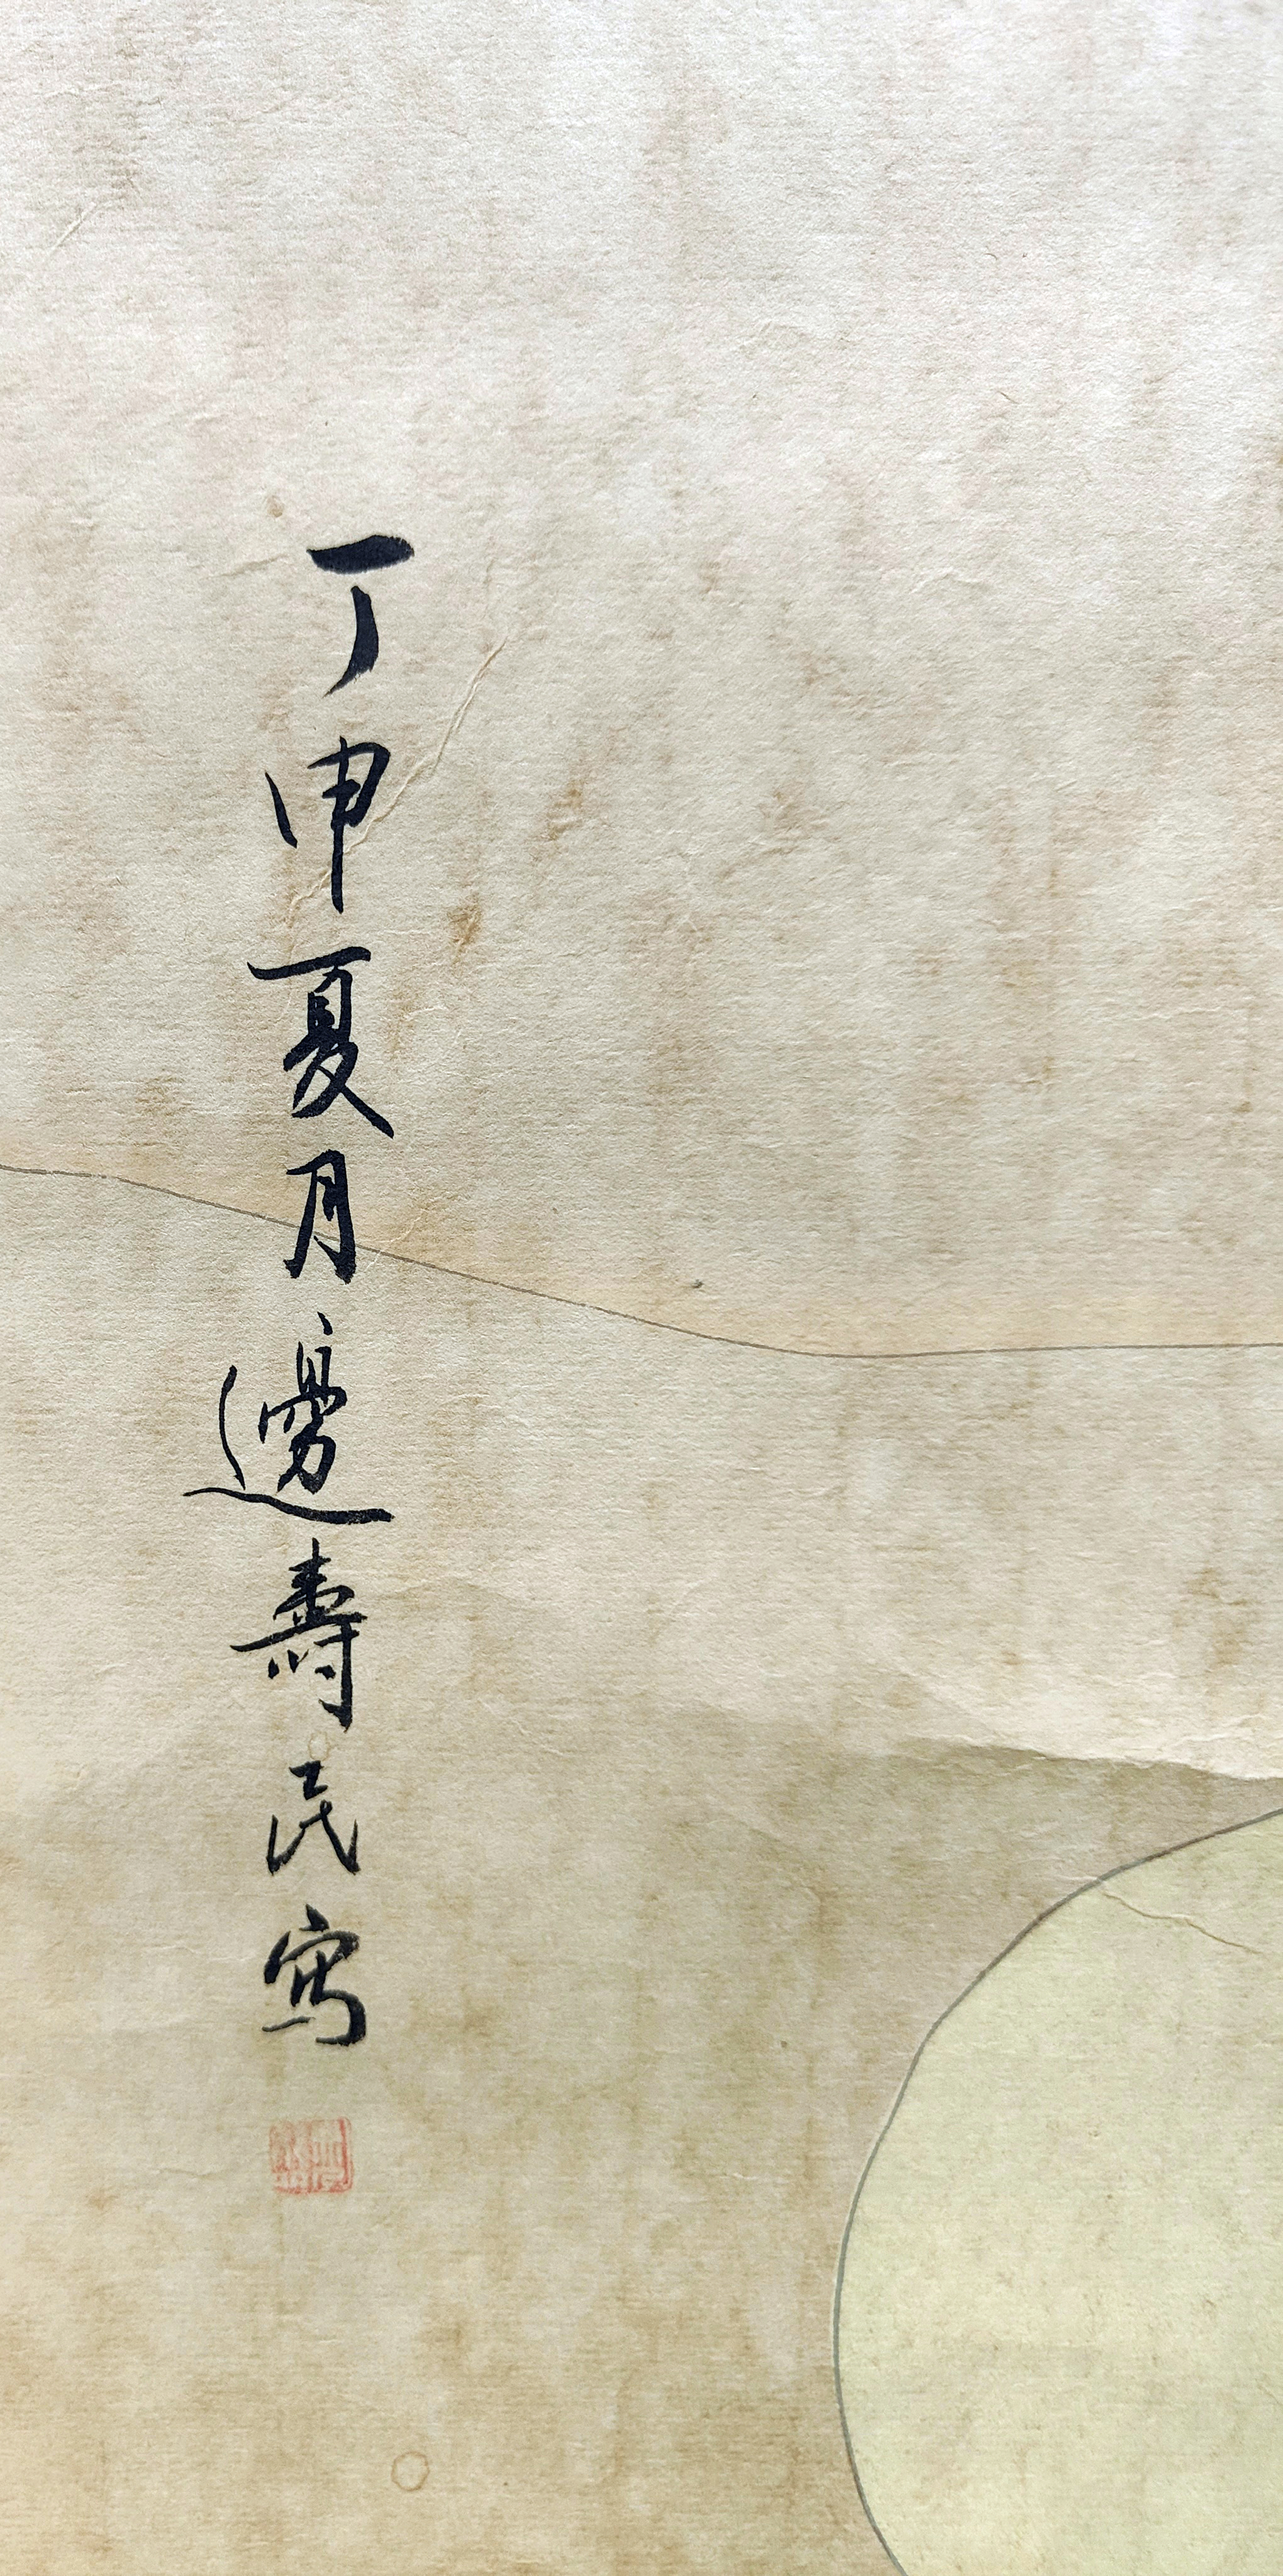 丁申夏月邊壽民寫